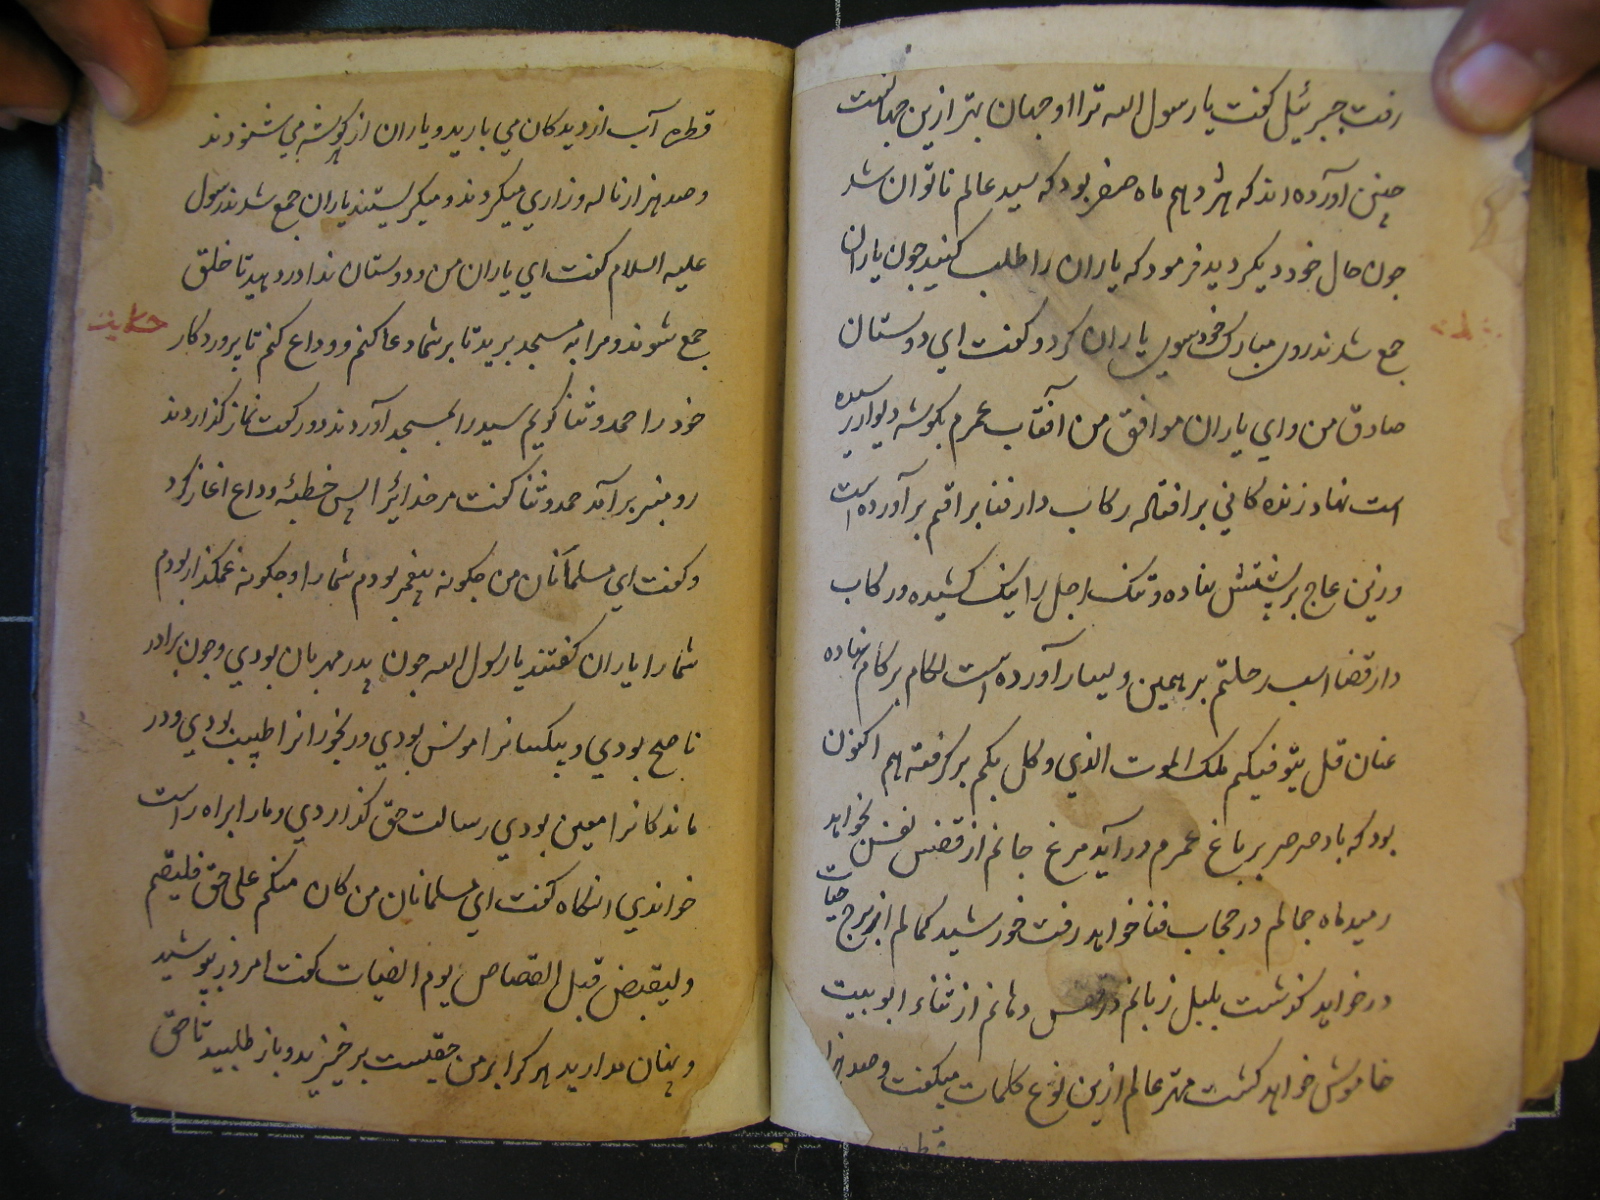 رفت جبرئیل کفت یا رسول الله ترا او جهان بهتر ازین جهانست
چنین آورده اند که هژدهم ماه صفر بود که سید عالم ناتوان شد
چون حال خود دیکر دید فرمود که یاران را طلب کنید چون یاران
جمع شدند روی مبارک خود سوی یاران کرد و کفت ای دوستان
صادق من و ای یاران موافق من آفتاب عمرم بکوشه دیوار رسیده
است نهاد زنده کانی بر افتاد رکاب دار فنا براقم برآورده است
و زین عاج بر پشتش نهاده و تنک اجل را تنک کشیده و رکاب
دار قضا اسب رحلتم بر یمین و یسار آورده است لکام بر کام نهاده
عنان قل یتوفیکم ملک الموت الذی وکل بکم بر کرفته هم اکنون
بود که باد صرصر بر باغ عمرم در آید مرغ جانم از قفس نفس بخواهد
رمید ماه جمالم در حجاب فنا خواهد رفت خورشید کمالم از برج حیات
در خواهد کذشت بلبل زبانم در قفس دهانم از ثناء ابو بیت
خاموش خواهد کشت مهتر عالم ازین نوع کلمات میکفت و صد هزار
قطره
قطره آب از دیدکان می بارید و یاران از کوشه می شنودند
و صد هزار ناله و زاری میکردند و میکریستند یاران جمع شدند رسول
علیه السلام کفت ای یاران من و دوستان ندا در دهید تا خلق
جمع شوند و مرا به مسجد برید تا بر شما دعا کنم و وداع کنم تا پروردکار
حکایت
خود را حمد و ثنا کویم سید را بمسجد آوردند دو رکعت نماز کذاردند
رو بمنبر برآمد حمد و ثنا کفت مر خدائیرا پس خطبهٔ وداع اغاز کرد
و کفت ای مسلمانان من چکونه پیغمبر بودم شما را و چکونه غمکذار بودم
شما را یاران کفتند یا رسول الله چون پدر مهربان بودی و چون برادر
ناصح بودی و بیکسانرا مونس بودی و رنجورانرا طبیب بودی و در
ماندکانرا معین بودی رسالت حق کذاردی و ما را براه راست
خواندی انکاه کفت ای مسلمانان من کان منکم علی حق فلیقم
ولیقبض قبل القصاص یوم القیات کفت امروز بپوشید
و پنهان مدارید هر کرا بر من حقیست برخیزید و باز طلبید تا حق